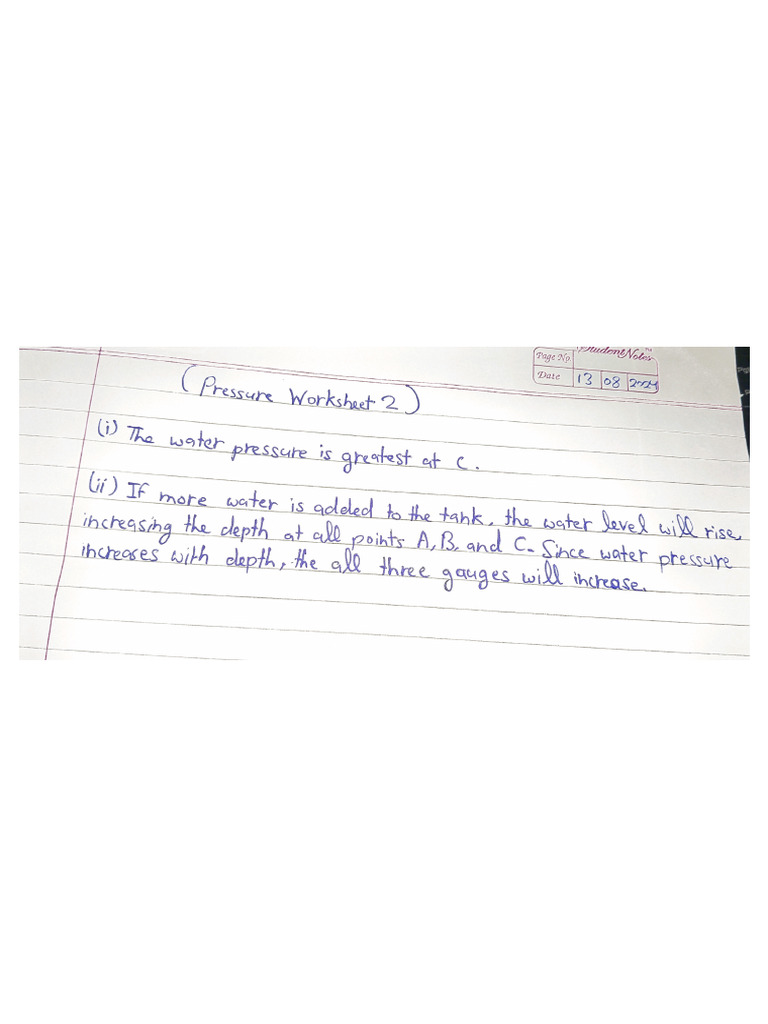 StudentNotes
Page No
Date 13 08 2024
(Pressure Worksheet 2)
(i) The water pressure is greatest at C.
(ii) If more water is added to the tank, the water level will rise,
increasing the depth at all points A, B, and C. Since water pressure
increases with depth, the all three gauges will increase.